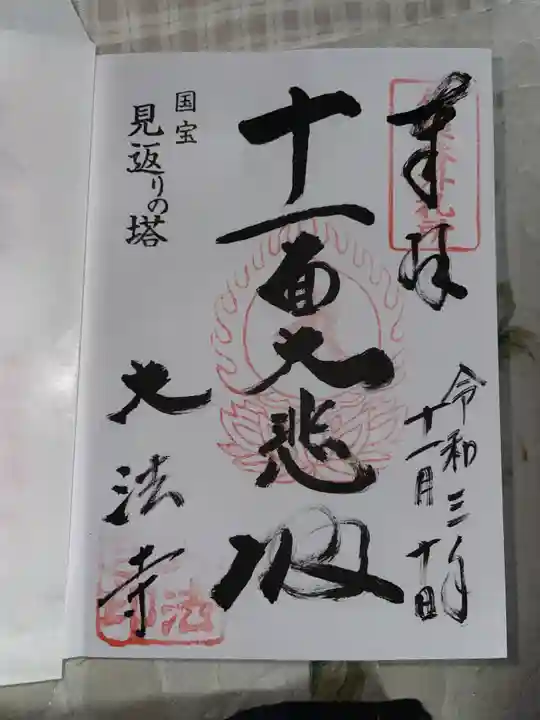 奉拝
令和三年
十一月二十日
十一面大悲殿
国宝
見返りの塔
大法寺